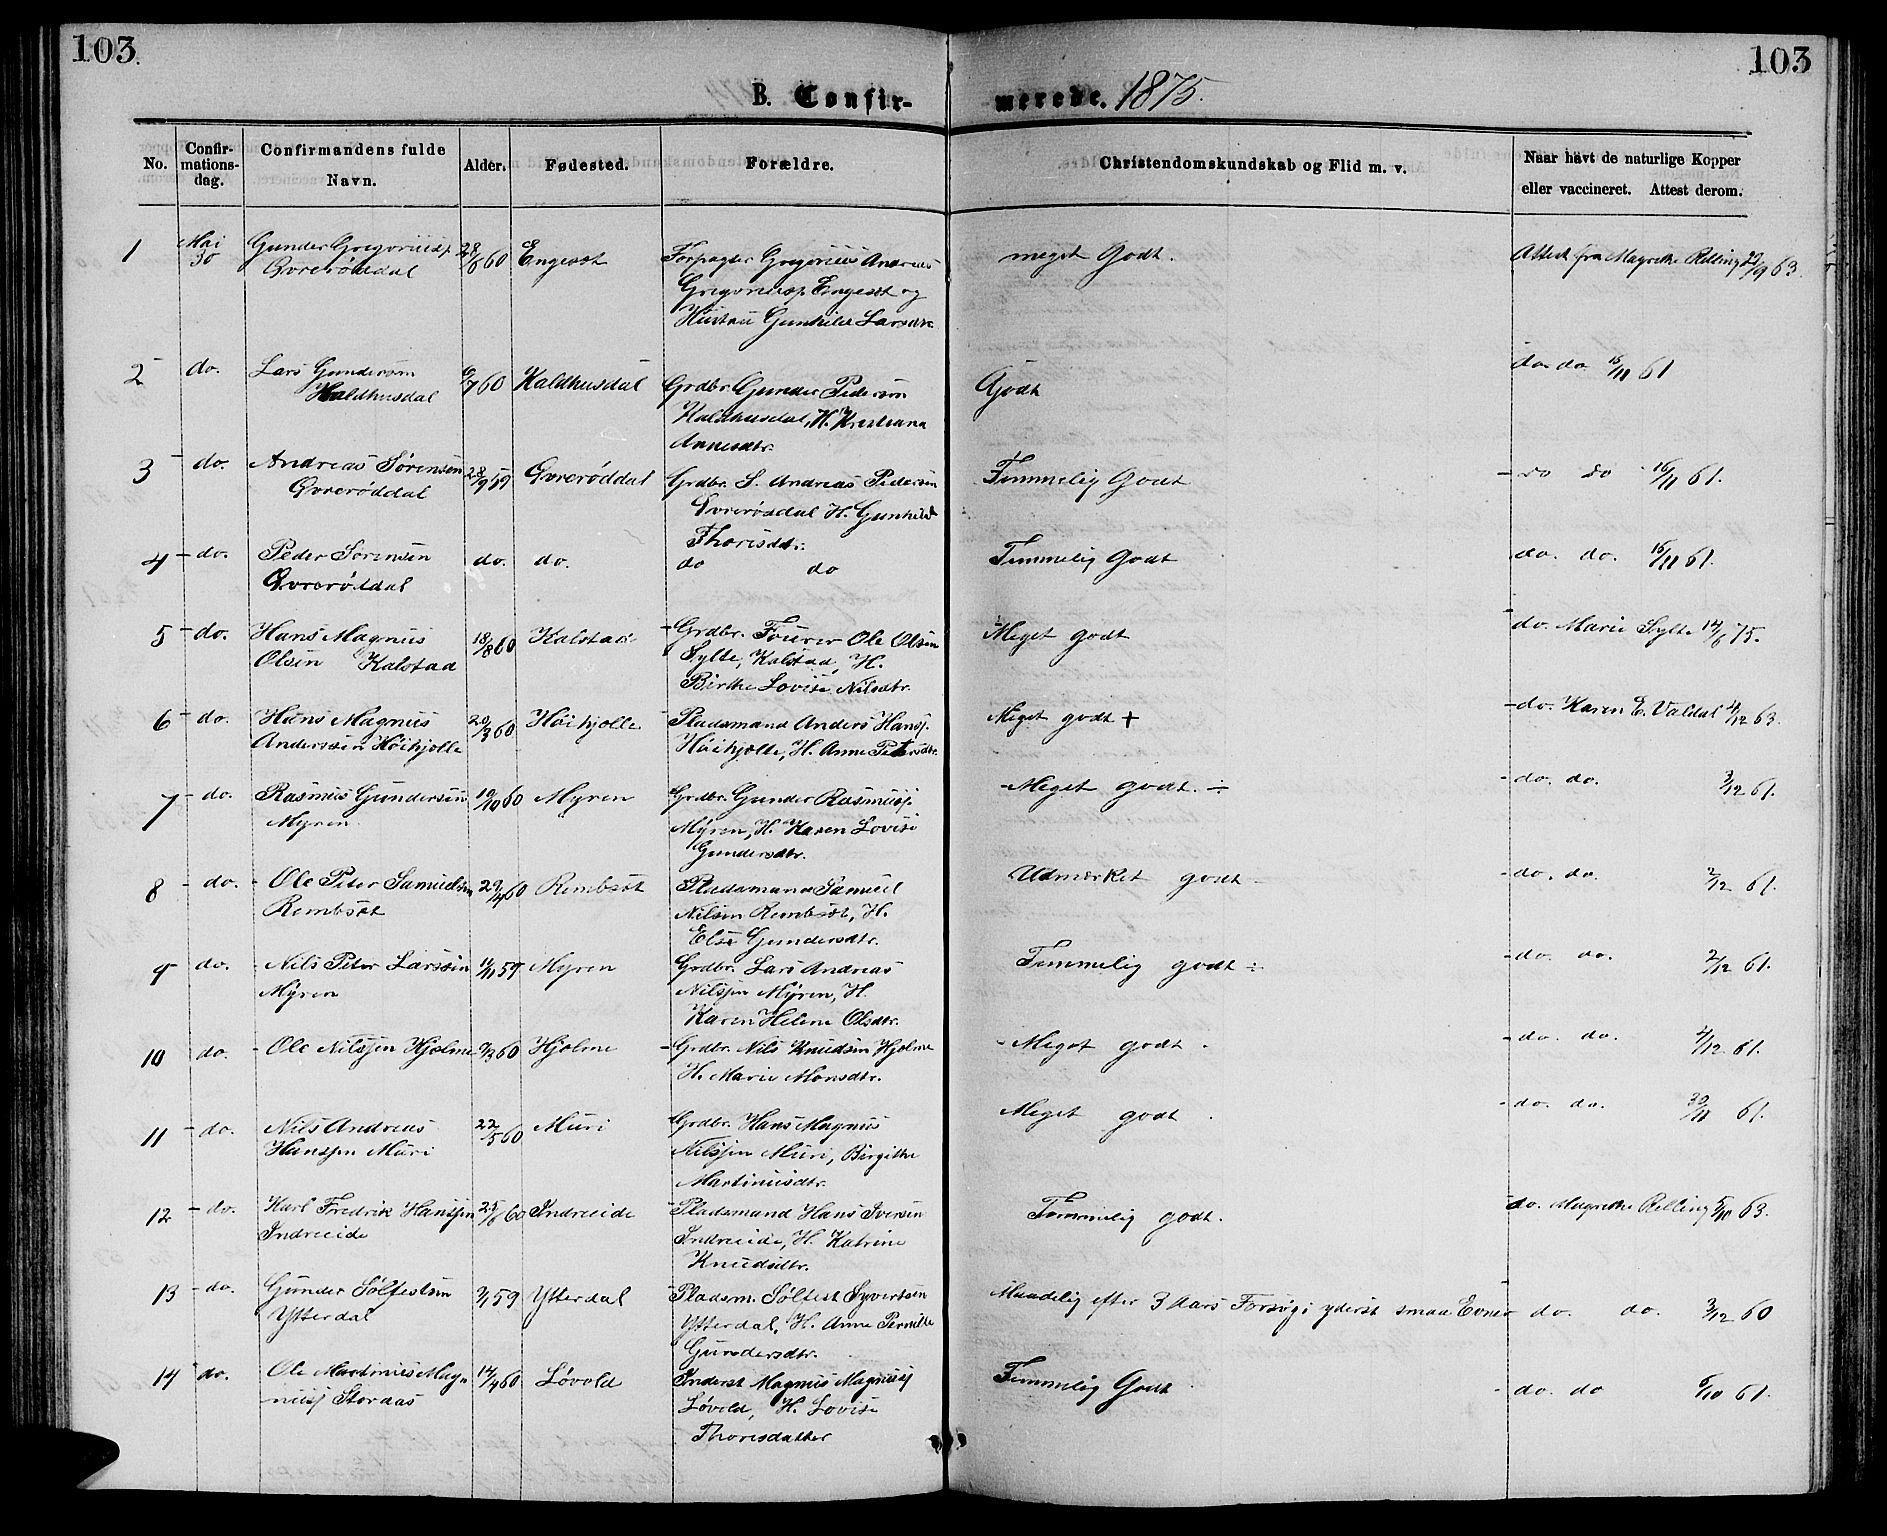 103.
103
B. Confir-
merede. 1875.
No.
Confir-
mations-
dag.
Confirmandens fulde
Navn.
Alder.
Fødested.
Forældre.
Christendomskundskab og Flid m. v.
Naar havt de naturlige Kopper
eller vaccineret. Attest derom.
1 Mai 30 Gunder Gregoriusp. 28/6 60 Engeset Forpagter Gregorius Andreas meget Godt. Attest fra Magrethe Relling 29/9 63.
Øvrerøddal Gregoriusp. Engeset og
Hustru Gunhild Larsdtr.
2 do. Lars Gundersøn 6/7 60 Kaldhusdal Grdbr. Gunder Pedersøn Godt do. do. 15/11 61
Kaldhusdal Kaldhusdal, H. Kristiana
Annesdtr.
3 do. Andreas Sørensen 28/9 59 Øvrerøddal Grdbr. S. Andreas Pedersen Temmelig Godt do do 16/11 61.
Øvrerøddal Øvrerøddal H. Gunhild
Thoresdtr.
4 do. Peder Sørensen do. do. do do Temmelig Godt do. do. 16/11 61.
Øvrerøddal
5 do. Hans Magnus 18/8 60 Kalstad Grdbr. Fourer Ole Olsen Meget godt do. Marie Sylte 14/6 75.
Olsen Kalstad Sylte, Kalstad, H.
Birthe Lovise Nilsdtr.
6 do. Hans Magnus 20/3 60 Høihjølle Pladsmand Anders Hansp. Meget godt + do. Karen E. Valdal 4/12 63.
Anderssen Høihjølle Høihjølle, H. Anne Petersdtr.
7 do. Rasmus Gundersen 19/10 60 Myren Grdbr. Gunder Rasmusp. Meget godt. ÷ do. do. 3/12 61.
Myren Myren, H. Karen Lovise
Gundersdtr.
8 do. Ole Peter Samuelsen 29/4 60 Rembsøt Pladsmand Samuel Udmærket godt do. do. 2/12 61.
Rembsøt Nilsen Rembsøt, H.
Else Gundersdtr.
9 do. Nils Peter Larssen 11/11 59 Myren Grdbr. Lars Andreas Temmelig godt ÷ do. do. 2/12 61.
Myren Nilssen Myren, H.
Karen Helene Olsdtr.
10 do. Ole Nilssen Hjelme 9/3 60 Hjelme Grdbr. Nils Knudsen Hjelme Meget godt do. do. 4/12 61.
H. Marie Monsdtr.
11 do. Nils Andreas 22/5 60 Muri Grdbr. Hans Magnus Meget godt do. do. 30/11 61.
Hanssen Muri Nilssen Muri, Birgithe
Martinusdtr.
12 do. Karl Fredrik Hanssen 25/6 60 Indreeide Pladsmand Hans Iversen Temmelig godt. do. Magrethe Relling 5/10 63.
Indreeide Indreeide, H. Katrine
Knudsdtr.
13 do. Gunder Sølfestsen 59 Ytterdal Pladsm. Sølfest Syvertsen Maadelig efter 3 Aars Forsøg; yderst smaa Evner do. do. 3/12 60
Ytterdal Ytterdal, H. Anne Pernille
Gundersdtr.
14 do. Ole Martinus Mag- 14/4 60 Løvold Inderst Magnus Magnusp. Temmelig Godt do. do 6/10 61.
nusp Stordas Løvold, H. Lovise
Thoresdatter